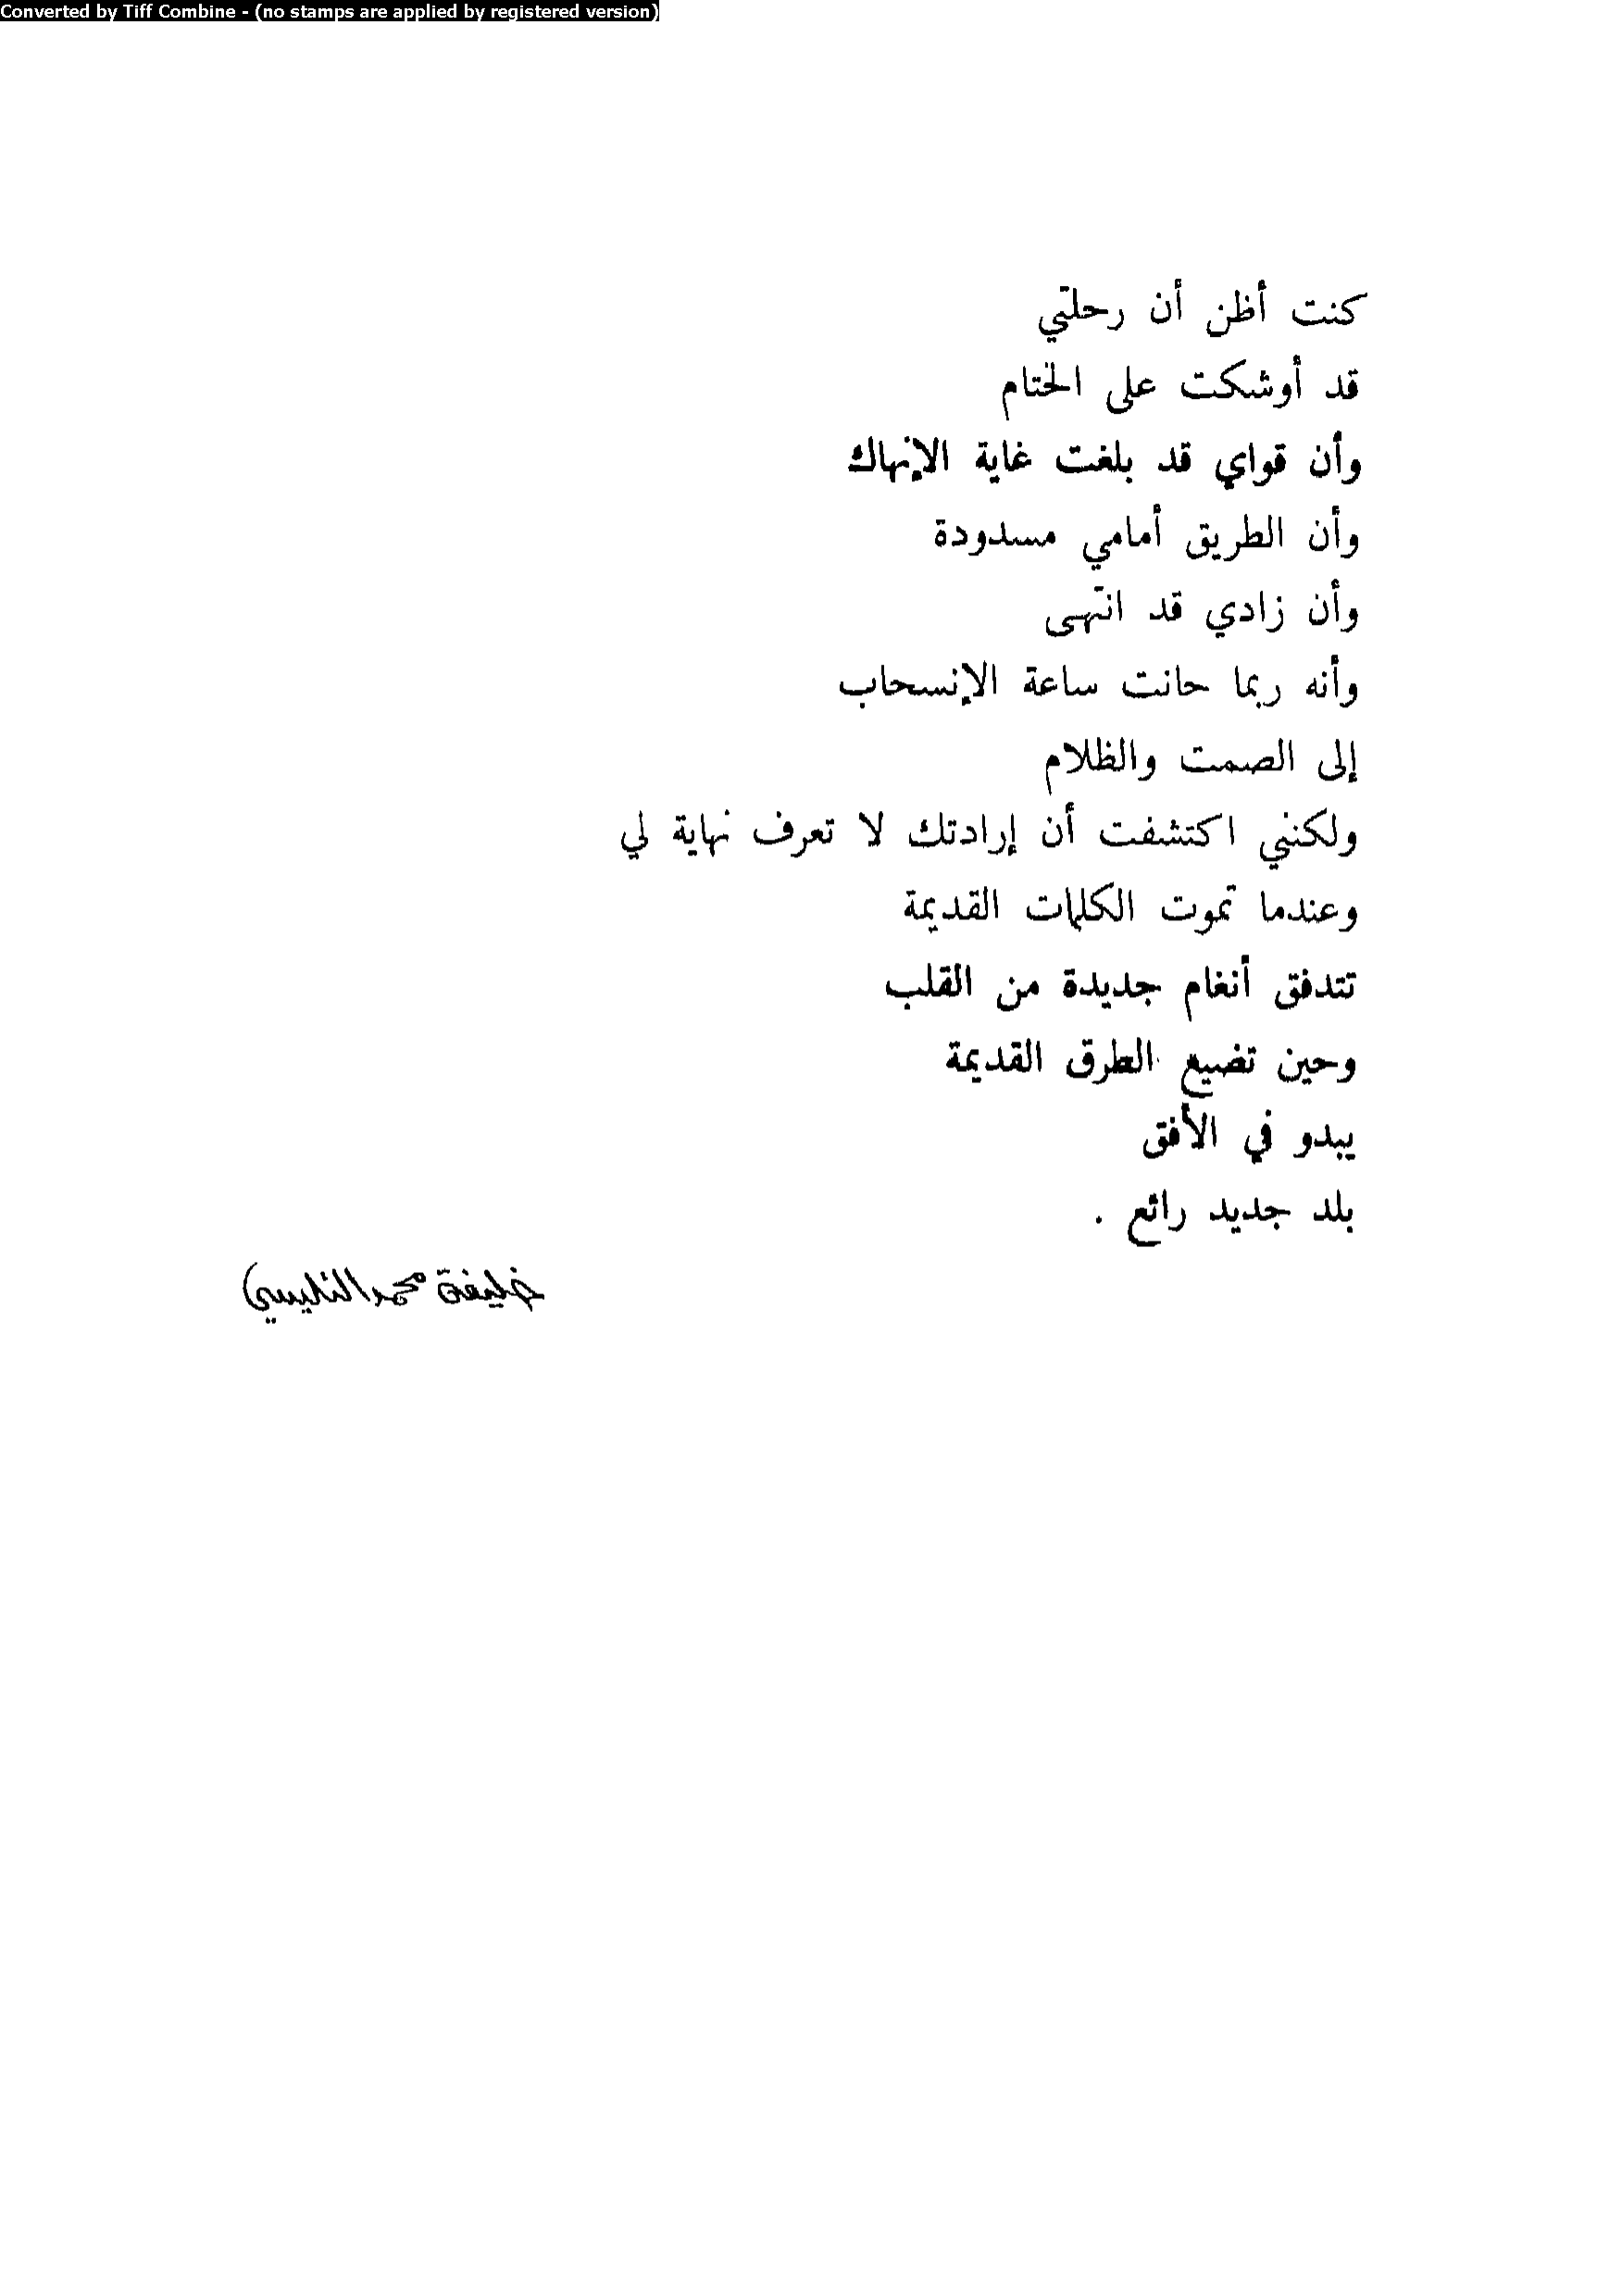 Converted by Tiff Combine - (no stamps are applied by registered version)
كنت أظن أن رحلتي
قد أوشكت على الختام
وأن قواي قد بلغت غاية الإنهاك
وأن الطريق أمامي مسدودة
وأن زادي قد انتهى
وأنه ربما حانت ساعة الإنسحاب
إلى الصمت والظلام
ولكنني اكتشفت أن إرادتك لا تعرف نهاية لي
وعندما تموت الكلمات القديمة
تتدفق أنغام جديدة من القلب
وحين تضيع الطرق القديمة
يبدو في الأفق
بلد جديد رائع .
خليفة محمد التليسي